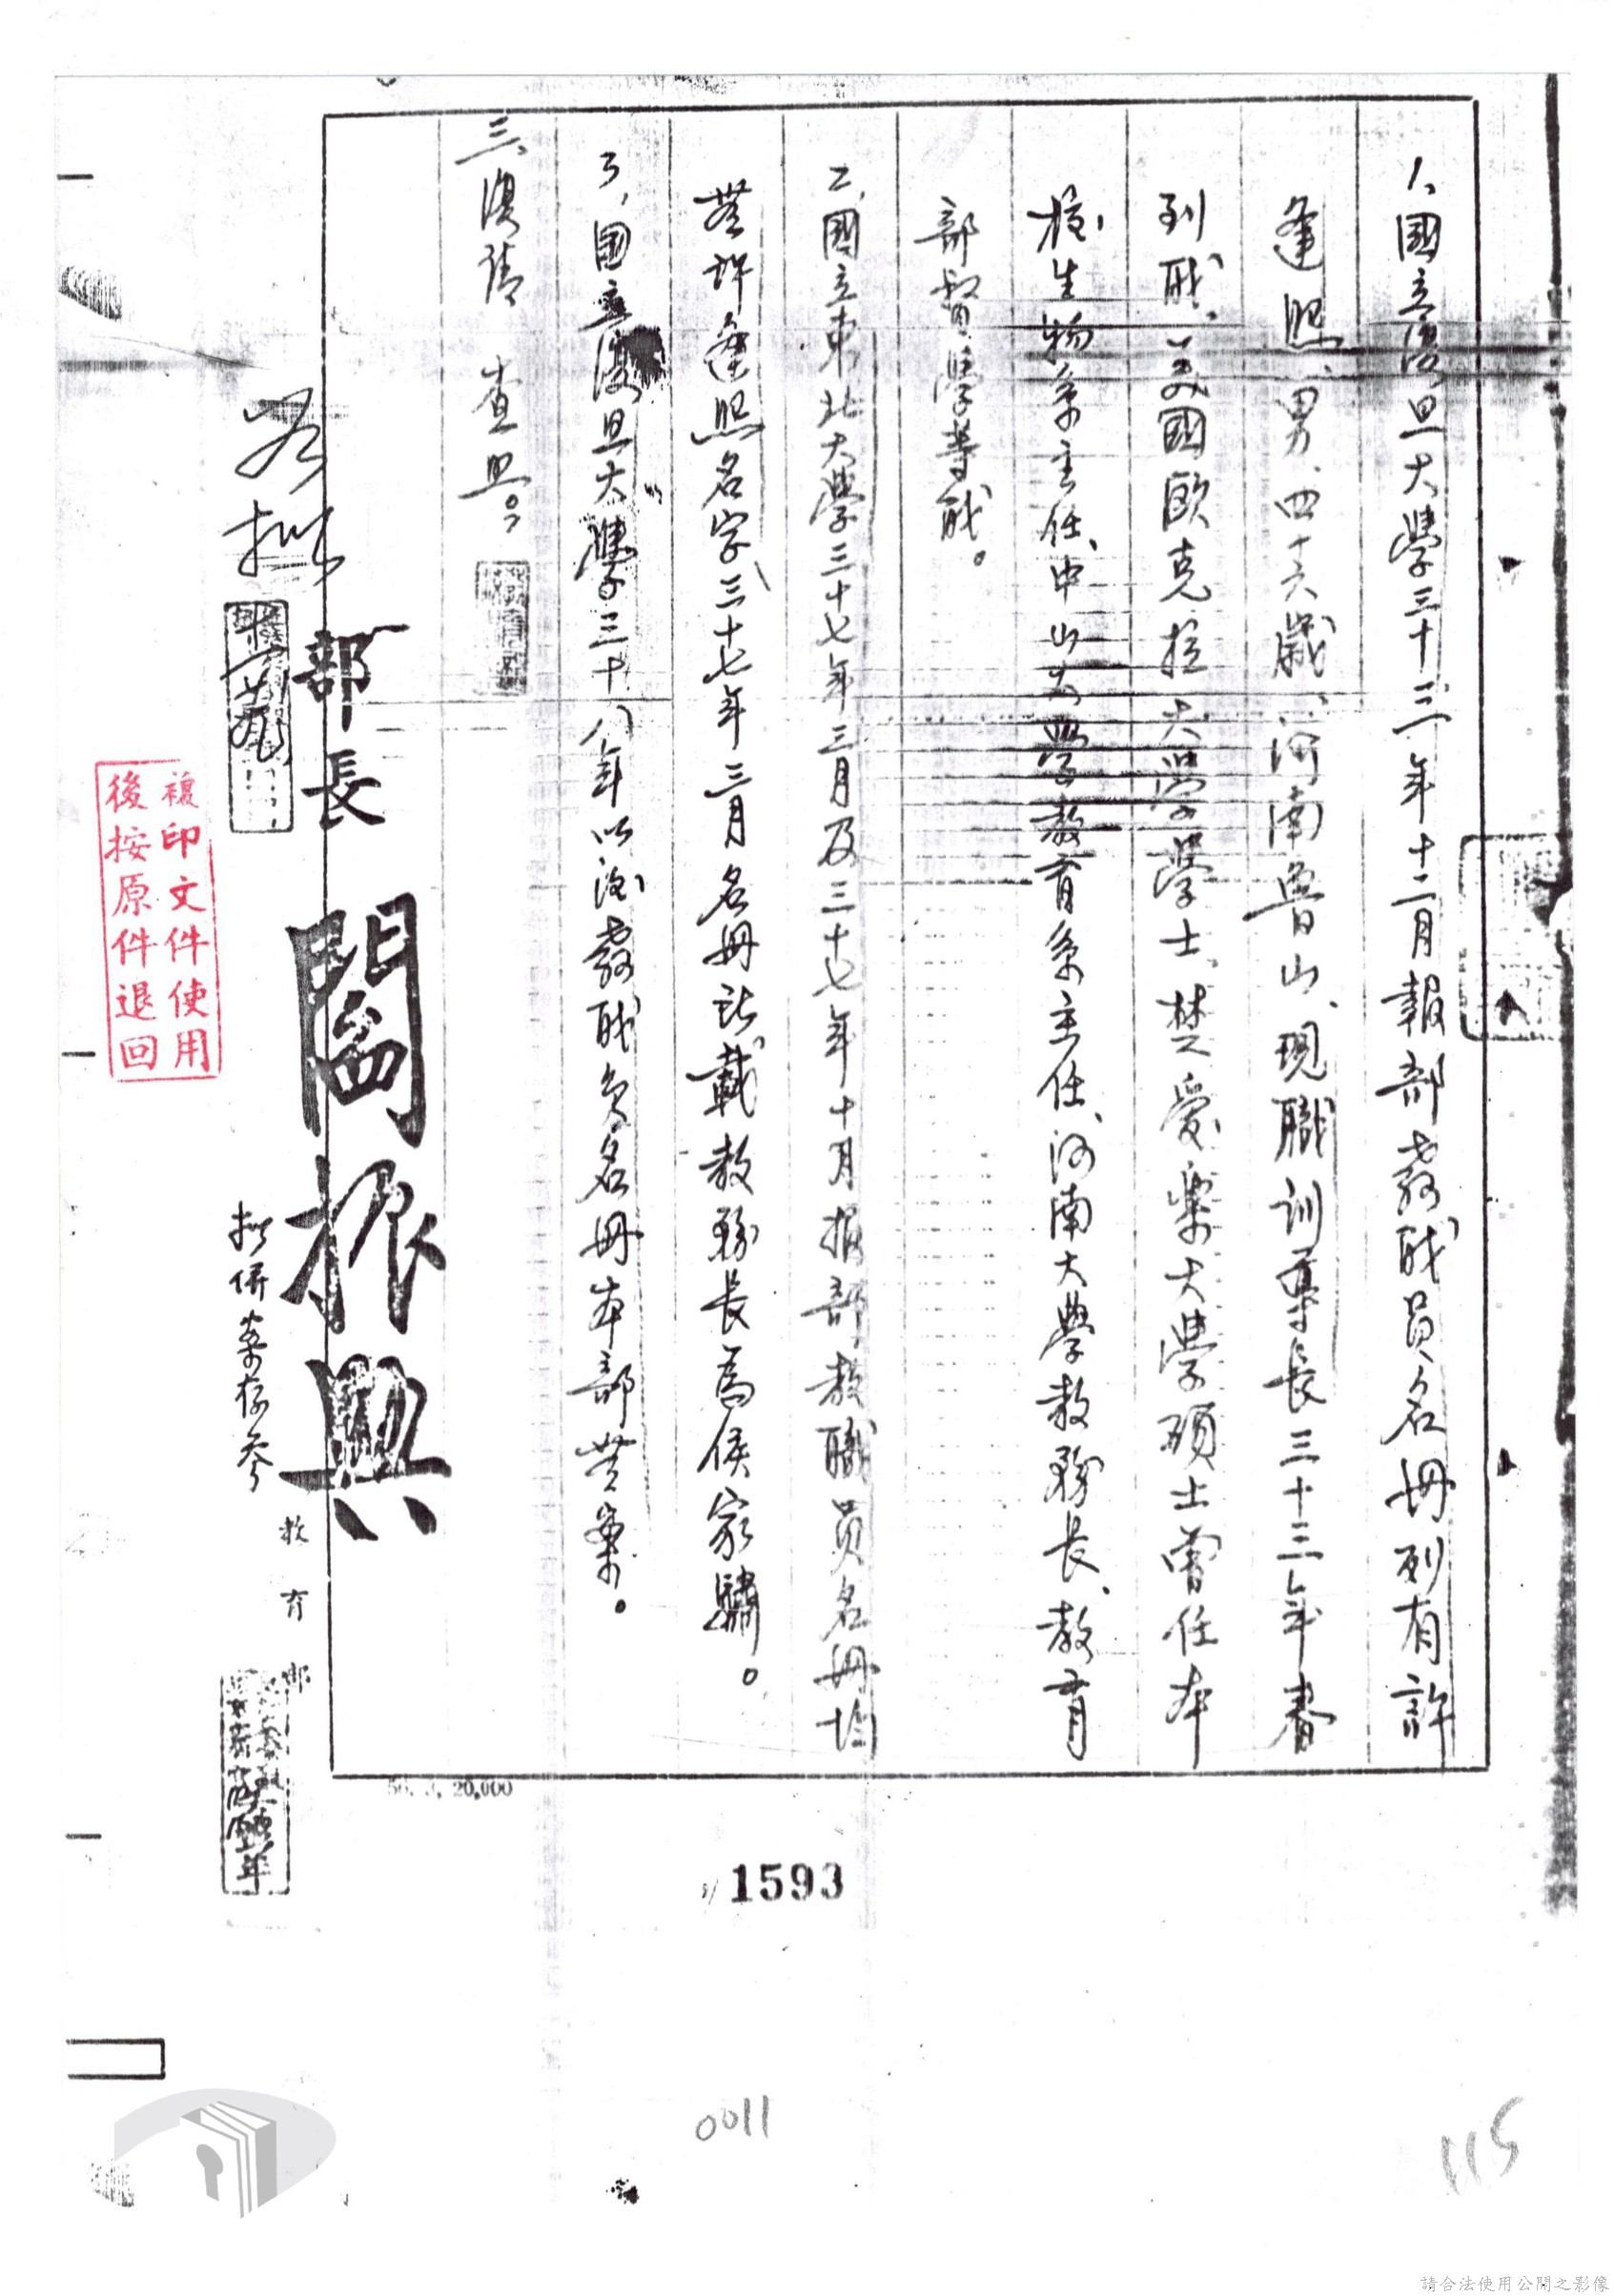 1、國立復旦大學三十三年十二月報部教职員名冊列有許
逢熙、男、四十六歲、河南魯山、現職訓導長三十三年春
到职、美國歐克拉大學學士、芝愛樂大學碩士曾任本
校生物系主任、中山大學教育系主任、河南大學教務長、教育
部督學等职。
2、國立東北大學三十七年三月及三十七年十月报部教職員名冊均
無許逢熙名字、三十七年三月名冊記載教務長為侯家驌。
3、國立復旦大學三十八年以後教职员名冊本部無案。
三、復請 查照。
部長 閻振興
如擬
擬併案存參
教育部
複印文件使用
後按原件退回
20,000
1593
0011
115
請合法使用公開之影像